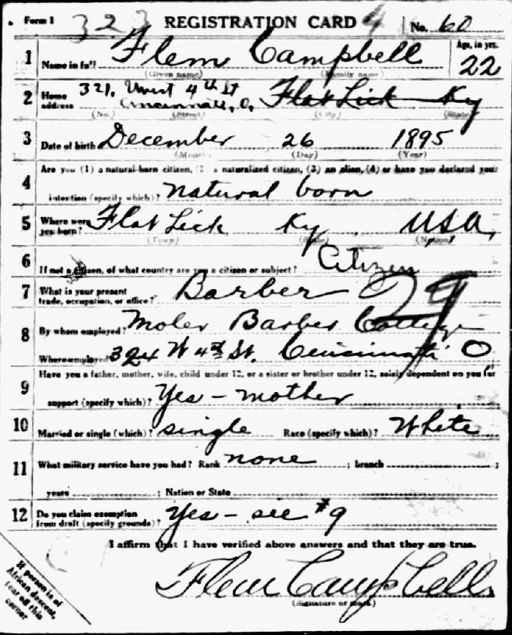 Form 1 323 REGISTRATION CARD 4 No. 60
1 Name in full Flem Campbell Age, in yrs. 22
(Given name) (Family name)
2 Home address 321, West 4th St Cincinnati, O. Flat Lick Ky
(No.) (Street) (City) (State)
3 Date of birth December 26 1895
(Month) (Day) (Year)
4 Are you (1) a natural-born citizen, (2) a naturalized citizen, (3) an alien, (4) or have you declared your
intention (specify which)? natural born
5 Where were you born? Flat Lick Ky. USA,
(Town) (State) (Nation)
6 If not a citizen, of what country are you a citizen or subject? Citizen
7 What is your present trade, occupation, or office? Barber 29
8 By whom employed? Moler Barber College
Where employed 324 W 4th St. Cincinnati O
9 Have you a father, mother, wife, child under 12, or a sister or brother under 12, solely dependent on you for
support (specify which)? Yes - mother
10 Married or single (which)? single Race (specify which)? White
11 What military service have you had? Rank none ; branch ;
years ; Nation or State
12 Do you claim exemption from draft (specify grounds)? Yes - see #9
I affirm that I have verified above answers and that they are true.
Flem Campbell
(Signature or mark)
If person is of
African descent,
tear off this
corner